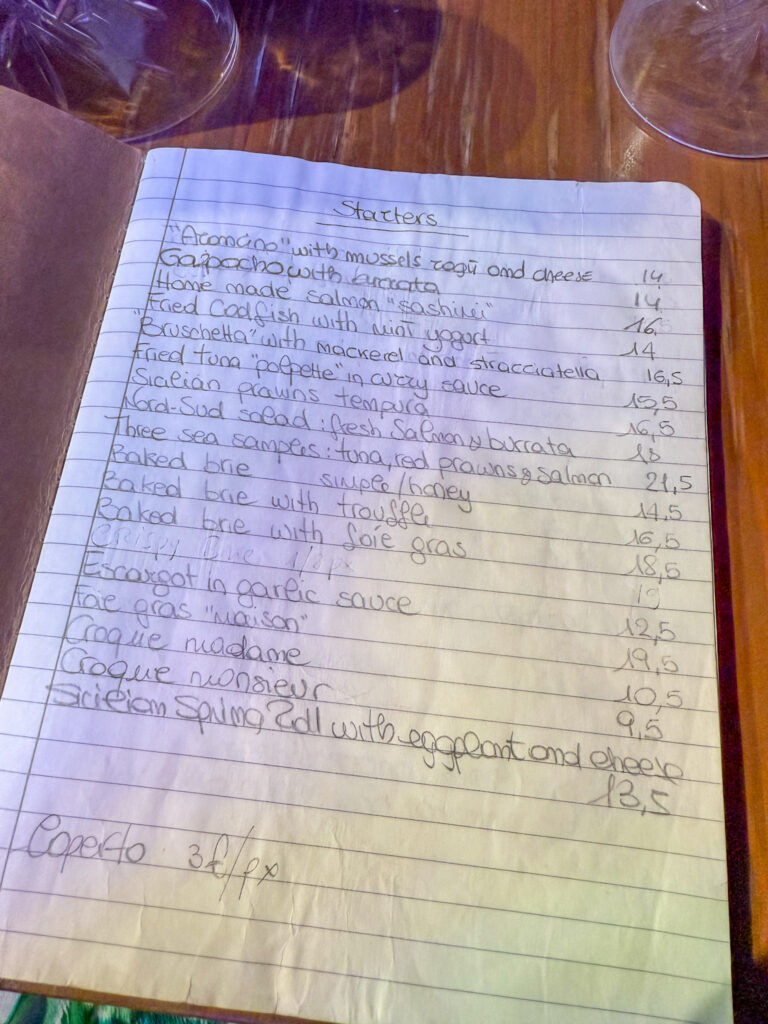 Starters
"Arancino" with mussels ragù and cheese 14
Gazpacho with burrata 14
Home made salmon "sashimi" 16
Fried Codfish with mint yogurt 14
"Bruschetta" with mackerel and stracciatella 16,5
Fried tuna "polpette" in curry sauce 15,5
Sicilian prawns tempura 16,5
Nord-Sud salad: fresh Salmon & burrata 18
Three sea samples: tuna, red prawns & salmon 21,5
Baked brie simple/honey 14,5
Baked brie with trouffle 16,5
Baked brie with foie gras 18,5
Crispy Brie
Escargot in garlic sauce 12,5
Foie gras "Maison" 19,5
Croque madame 10,5
Croque monsieur 9,5
Sicilian Spring Roll with eggplant and cheese
13,5
Coperto 3€/px